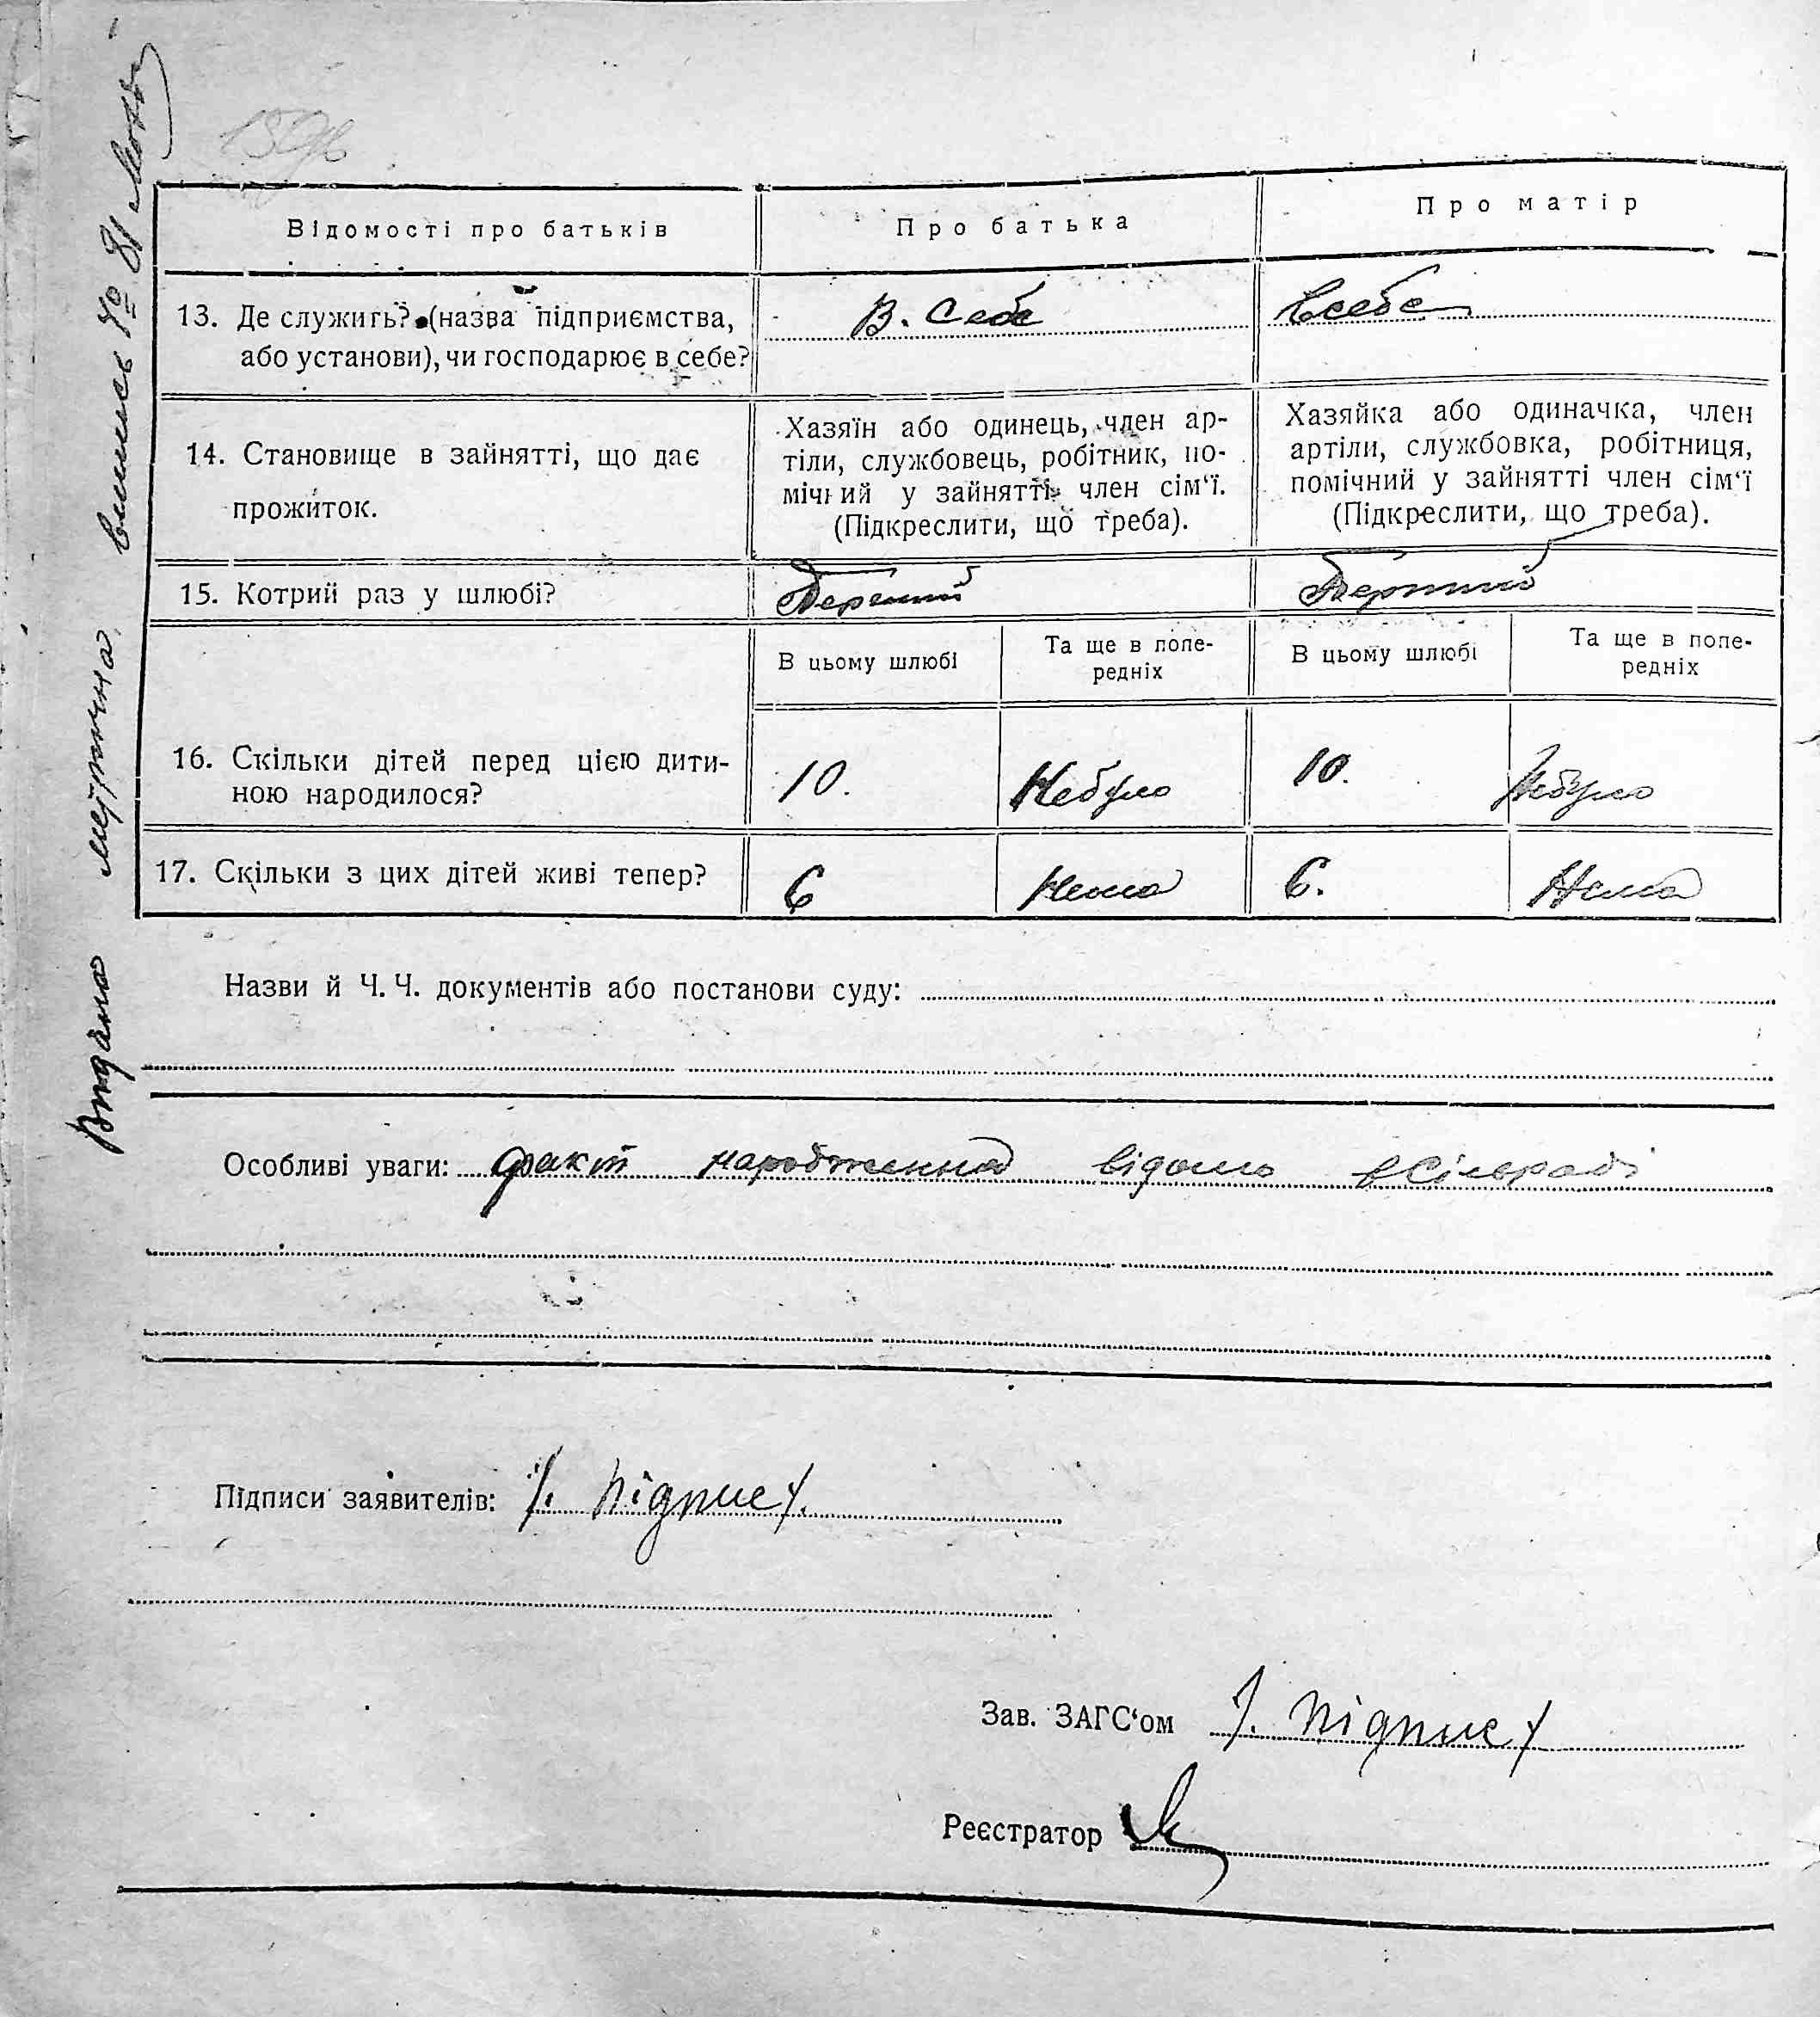 159
Відомості про батьків
Про батька
Про матір
13. Де служить? (назва підприємства,
або установи), чи господарює в себе?
В. Себе
Всебе
14. Становище в зайнятті, що дає
прожиток.
Хазяїн або одинець, член ар-
тіли, службовець, робітник, по-
мічний у зайнятті член сім‘ї.
(Підкреслити, що треба).
Хазяйка або одиначка, член
артіли, службовка, робітниця,
помічний у зайнятті член сім‘ї
(Підкреслити, що треба).
15. Котрий раз у шлюбі?
Перший
Перший
В цьому шлюбі
Та ще в попе-
редніх
В цьому шлюбі
Та ще в попе-
редніх
16. Скільки дітей перед цією дити-
ною народилося?
10.
Небуло
10.
Небуло
17. Скільки з цих дітей живі тепер?
6
Нема
6.
Нема
Назви й Ч. Ч. документів або постанови суду:
Особливі уваги: факт народження відомо всільраді
Підписи заявителів: /. підпис /.
Зав. ЗАГС‘ом /. підпис /
Реєстратор
Видана метрична випись № 81